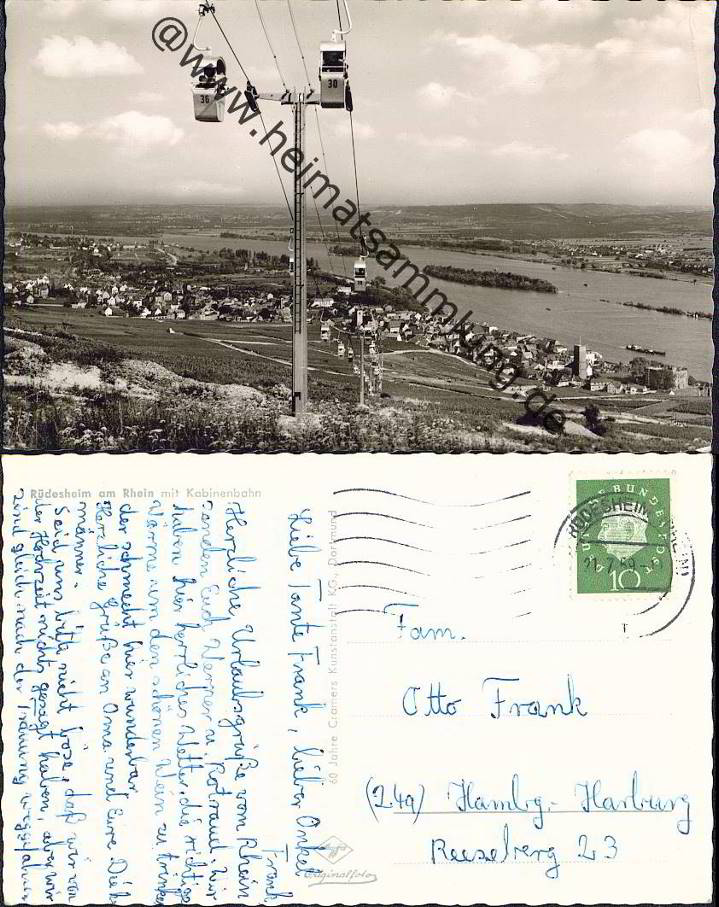 30
30
@www.heimatsammlung.de
Rüdesheim am Rhein mit Kabinenbahn
Liebe Tante Frank, lieber Onkel
Frank
Herzliche Urlaubsgrüße vom Rhein
senden Euch Werner u. Rotraud. Wir
haben hier herrliches Wetter, die richtige
Wärme um den schönen Wein zu trinken
der schmeckt hier wunderbar.
Herzliche Grüße an Oma und Eure
männer.
Seid uns bitte nicht böse, daß wir von
der Hochzeit nichts gesagt haben, aber wir
sind gleich nach der Trauung weggefahren
60 Jahre Cramers Kunstanstalt KG., Dortmund
Agfa
Originalfoto
DEUTSCHE BUNDESPOST
10
RÜDESHEIM
Fam.
Otto Frank
(24a) Hambg.-Harburg
Reeseberg 23